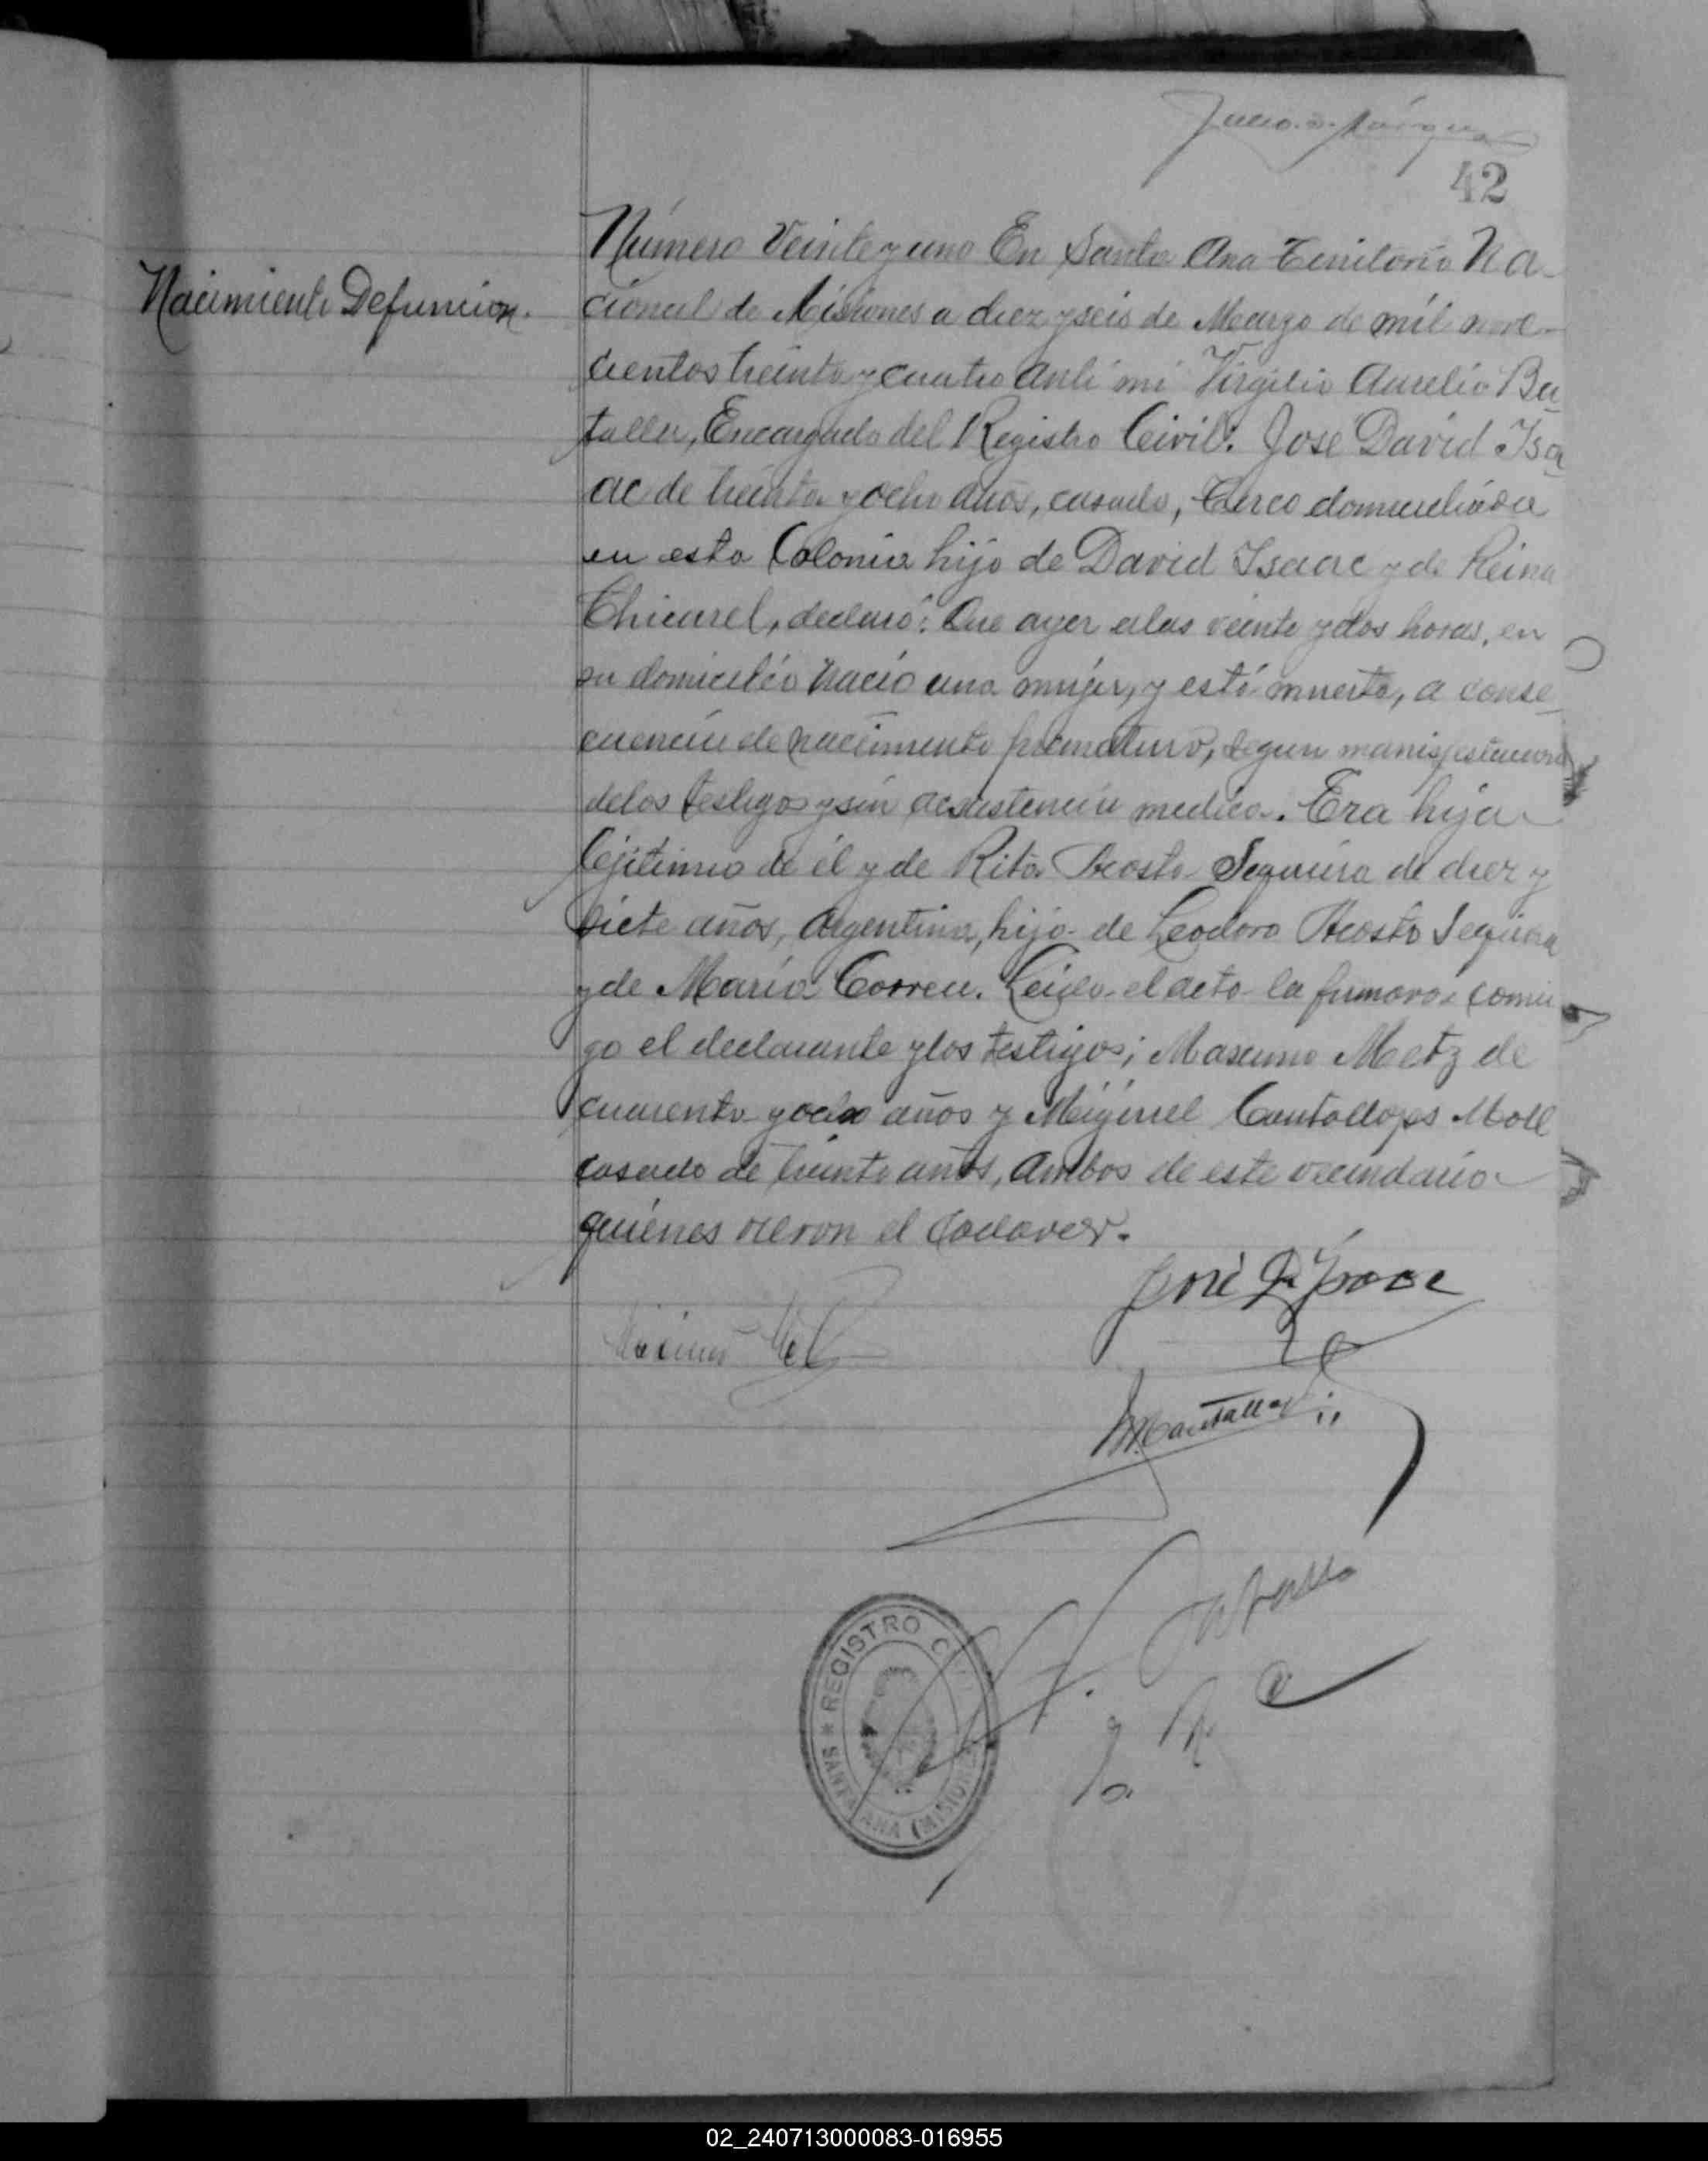 42
Nacimiento Defuncion.
Número Veinte y uno En Santa Ana Territorio Na-
cional de Misiones a diez y seis de Marzo de mil nove-
cientos treinta y cuatro Anti mi Virgilio Aurelio
Encargado del Registro Civil: Jose David Isa-
ac de treinta y ocho años, casado, Turco domiciliado
en esta Colonia hijo de David Isaac y de Reina
Chicurel, declaró: Que ayer a las veinte y dos horas, en
su domicilio nació una mujer, y está muerta, a conse-
cuencia de nacimiento prematuro, segun manifestacion
de los testigos y sin asistencia medica. Era hija
lejitima de él y de Rita Acosta Sequeira de diez y
siete años, Argentina, hija de Leodoro Acosta Sequeira
y de Maria Correa. Leida el acta la firmaron conmi
go el declarante y los testigos; Maximo Metz de
cuarenta y ocho años y Miguel Cantallops Moll
casado de treinta años, Ambos de este vecindario
quienes vieron el Cadaver.
José D. Isaac
Maximo Metz
M. Cantallops
REGISTRO CIVIL
* SANTA ANA (MISIONES)
02_240713000083-016955